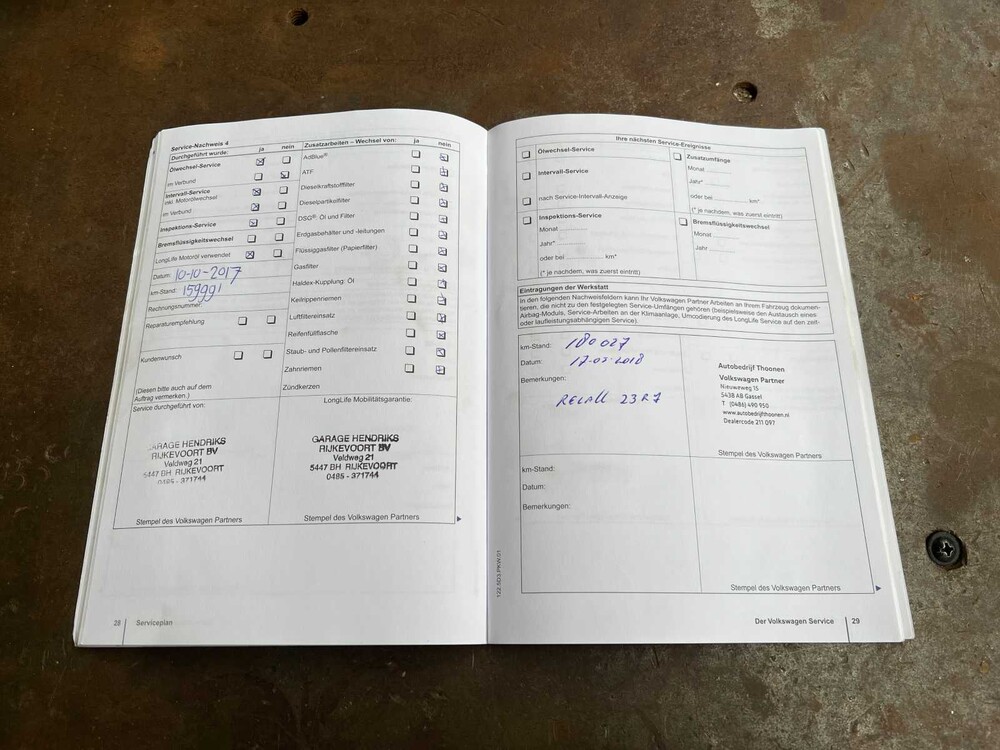 Service-Nachweis 4
Durchgeführt wurde: ja nein
Ölwechsel-Service
im Verbund
Intervall-Service
inkl. Motorölwechsel
im Verbund
Inspektions-Service
Bremsflüssigkeitswechsel
LongLife Motoröl verwendet
Datum: 10-10-2017
km-Stand: 159991
Rechnungsnummer
Reparaturempfehlung
Kundenwunsch
(Diesen bitte auch auf dem
Auftrag vermerken.)
Zusatzarbeiten – Wechsel von: ja nein
AdBlue®
ATF
Dieselkraftstofffilter
Dieselpartikelfilter
DSG®: Öl und Filter
Erdgasbehälter und -leitungen
Flüssiggasfilter (Papierfilter)
Gasfilter
Haldex-Kupplung: Öl
Keilrippenriemen
Luftfiltereinsatz
Reifenfüllflasche
Staub- und Pollenfiltereinsatz
Zahnriemen
Zündkerzen
Service durchgeführt von:
GARAGE HENDRIKS
RIJKEVOORT BV
Veldweg 21
5447 BH RIJKEVOORT
0485 - 371744
Stempel des Volkswagen Partners
LongLife Mobilitätsgarantie:
GARAGE HENDRIKS
RIJKEVOORT BV
Veldweg 21
5447 BH RIJKEVOORT
0485 - 371744
Stempel des Volkswagen Partners
28 Serviceplan
Ihre nächsten Service-Ereignisse
Ölwechsel-Service
Intervall-Service
nach Service-Intervall-Anzeige
Inspektions-Service
Monat ............
Jahr* ............
oder bei ............ km*
(* je nachdem, was zuerst eintritt)
Zusatzumfänge
Monat ............
Jahr* ............
oder bei ............ km*
(* je nachdem, was zuerst eintritt)
Bremsflüssigkeitswechsel
Monat ............
Jahr ............
Eintragungen der Werkstatt
In den folgenden Nachweisfeldern kann Ihr Volkswagen Partner Arbeiten an Ihrem Fahrzeug dokumen-
tieren, die nicht zu den festgelegten Service-Umfängen gehören (beispielsweise den Austausch eines
Airbag-Moduls, Service-Arbeiten an der Klimaanlage, Umcodierung des LongLife Service auf den zeit-
oder laufleistungsabhängigen Service).
km-Stand: 180027
Datum: 17-05-2018
Bemerkungen:
RECALL 23R7
Autobedrijf Thoonen
Volkswagen Partner
Nieuweweg 15
5438 AB Gassel
T (0486) 490 950
www.autobedrijfthoonen.nl
Dealercode 211 097
Stempel des Volkswagen Partners
km-Stand:
Datum:
Bemerkungen:
Stempel des Volkswagen Partners
122.5D3.PKW.01
Der Volkswagen Service 29